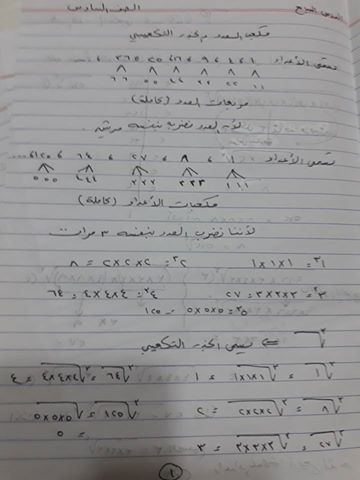 الصف السادس
مكعب العدد والجذر التكعيبي
تسمى الأعداد ١ ، ٤ ، ٩ ، ١٦ ، ٢٥ ، ٣٦ ،
١١ ٢٢ ٣٣ ٤٤ ٥٥ ٦٦
مربعات العدد (كاملة)
لأن العدد نضربه بنفسه مرتين
تسمى الأعداد ١ ، ٨ ، ٢٧ ، ٦٤ ، ١٢٥ ، ....
١١١ ٢٢٢ ٣٣٣ ٤٤٤ ٥٥٥
مكعبات الأعداد (كاملة)
لأننا نضرب العدد بنفسه ٣ مرات ....
١٣ = ١×١×١ ٢٣ = ٢×٢×٢ = ٨
٣٣ = ٣×٣×٣ = ٢٧ ٤٣ = ٤×٤×٤ = ٦٤
٥٣ = ٥×٥×٥ = ١٢٥
٣√ ⇐ تسمى الجذر التكعيبي
٣√١ = ٣√١×١×١ = ١ ٣√٦٤ = ٣√٤×٤×٤ = ٤
٣√٨ = ٣√٢×٢×٢ = ٢ ٣√١٢٥ = ٣√٥×٥×٥
= ٥
٣√٢٧ = ٣√٣×٣×٣ = ٣
١